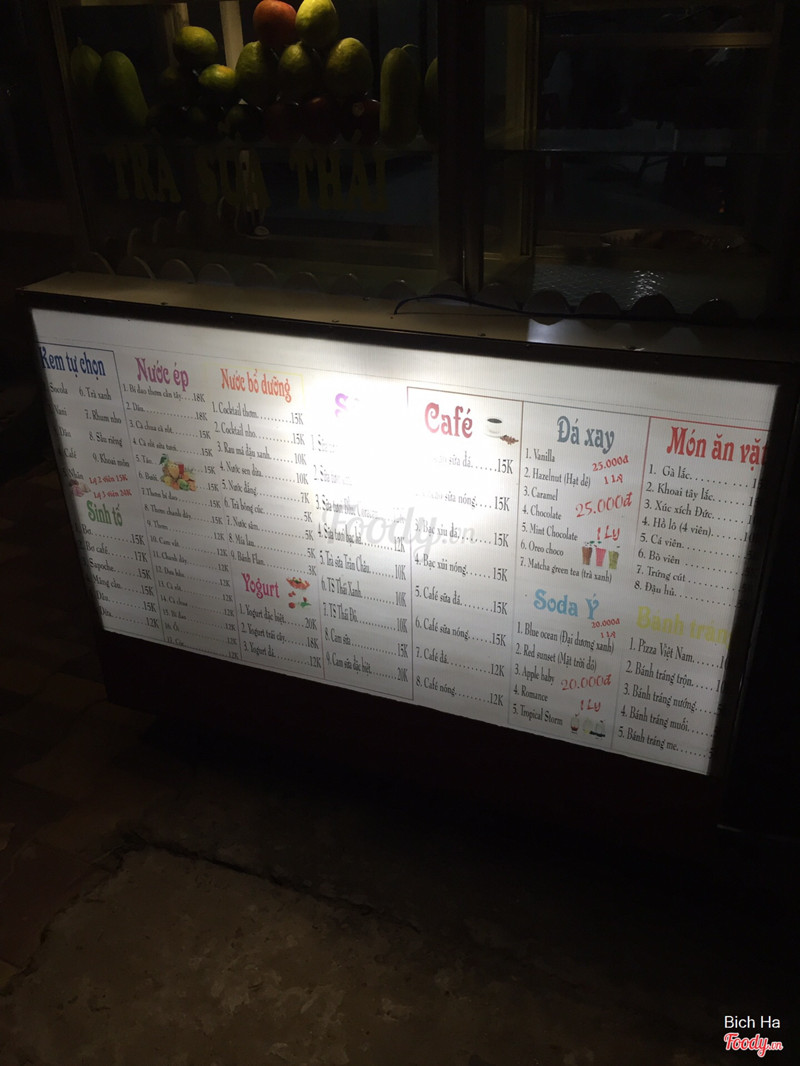 TRÀ SỮA THÁI
Kem tự chọn
6. Trà xanh
7. Rhum nho
8. Sầu riêng
9. Khoai môn
Ly 2 viên 15K
Ly 3 viên 20K
Sinh tố
1. Bơ.....17K
Bơ café.....17K
Sapoche.....15K
Mãng cầu.....15K
Dâu.....15K
Dừa.....12K
Nước ép
1. Bó đao thơm cần tây....18K
2. Dâu.....18K
3. Cà chua cà rốt.....15K
4. Cà rốt sữa tươi.....15K
5. Táo.....15K
6. Bưởi.....15K
7. Thơm bí đao.....15K
8. Thơm chanh dây.....15K
9. Thơm.....12K
10. Cam vắt.....12K
11. Chanh dây.....12K
13. Cà rốt.....12K
14. Cà chua.....12K
16. Ổi.....12K
17. Cóc.....12K
Nước bổ dưỡng
1. Cocktail thơm.....15K
2. Cocktail nho.....15K
3. Rau má đậu xanh.....10K
4. Nước sen dừa.....10K
5. Nước đắng.....7K
6. Trà bông cúc.....5K
7. Nước sâm.....5K
8. Mía lau.....5K
9. Bánh Flan.....3K
Yogurt
1. Yogurt đặc biệt.....20K
2. Yogurt trái cây.....18K
3. Yogurt đá.....12K
4. Sữa tươi bạc hà.....12K
5. Trà sữa Trân Châu.....10K
6. TS Thái Xanh.....10K
7. TS Thái Đỏ.....10K
8. Cam sữa.....15K
9. Cam sữa đặc biệt.....20K
Café
sữa đá.....15K
sữa nóng.....15K
3. Bạc xỉu đá.....15K
4. Bạc xỉu nóng.....15K
5. Café sữa đá.....15K
6. Café sữa nóng.....15K
7. Café đá.....12K
8. Café nóng.....12K
Đá xay
1. Vanilla
2. Hazelnut (Hạt dẻ)
3. Caramel
4. Chocolate
5. Mint Chocolate
6. Oreo choco
7. Matcha green tea (trà xanh)
25.000đ
1 Ly
25.000đ
1 Ly
Soda Ý
1. Blue ocean (Đại dương xanh)
2. Red sunset (Mặt trời đỏ)
3. Apple baby
4. Romance
5. Tropical Storm
20.000đ
1 Ly
20.000đ
1 Ly
Món ăn vặt
1. Gà lắc
2. Khoai tây lắc
3. Xúc xích Đức
4. Hồ lô (4 viên)
5. Cá viên
6. Bò viên
7. Trứng cút
8. Đậu hủ
Bánh tráng
1. Pizza Việt Nam
2. Bánh tráng trộn
3. Bánh tráng nướng
4. Bánh tráng muối
5. Bánh tráng me
Foody.vn
Bich Ha
Foody.vn